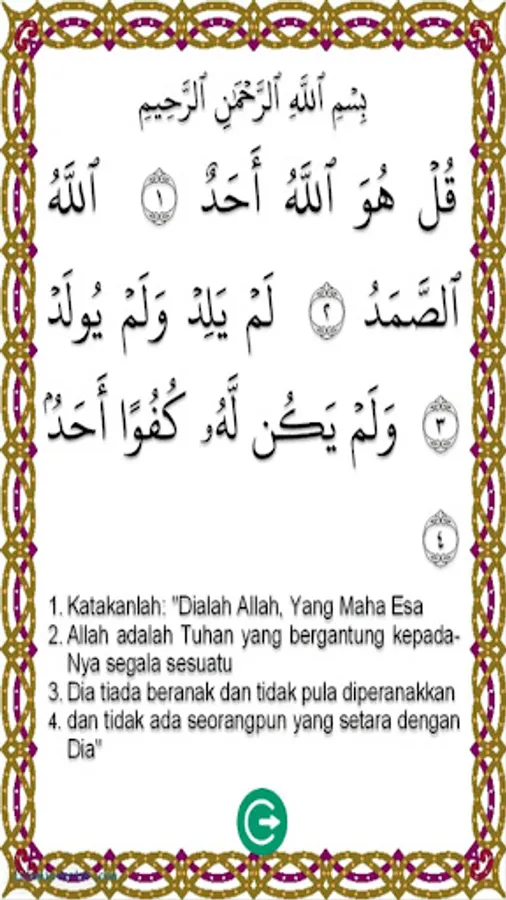 بِسْمِ ٱللَّهِ ٱلرَّحْمَٰنِ ٱلرَّحِيمِ
قُلْ هُوَ ٱللَّهُ أَحَدٌ ١ ٱللَّهُ
ٱلصَّمَدُ ٢ لَمْ يَلِدْ وَلَمْ يُولَدْ
٣ وَلَمْ يَكُن لَّهُۥ كُفُوًا أَحَدُۢ
٤
1. Katakanlah: "Dialah Allah, Yang Maha Esa
2. Allah adalah Tuhan yang bergantung kepada-
Nya segala sesuatu
3. Dia tiada beranak dan tidak pula diperanakkan
4. dan tidak ada seorangpun yang setara dengan
Dia"